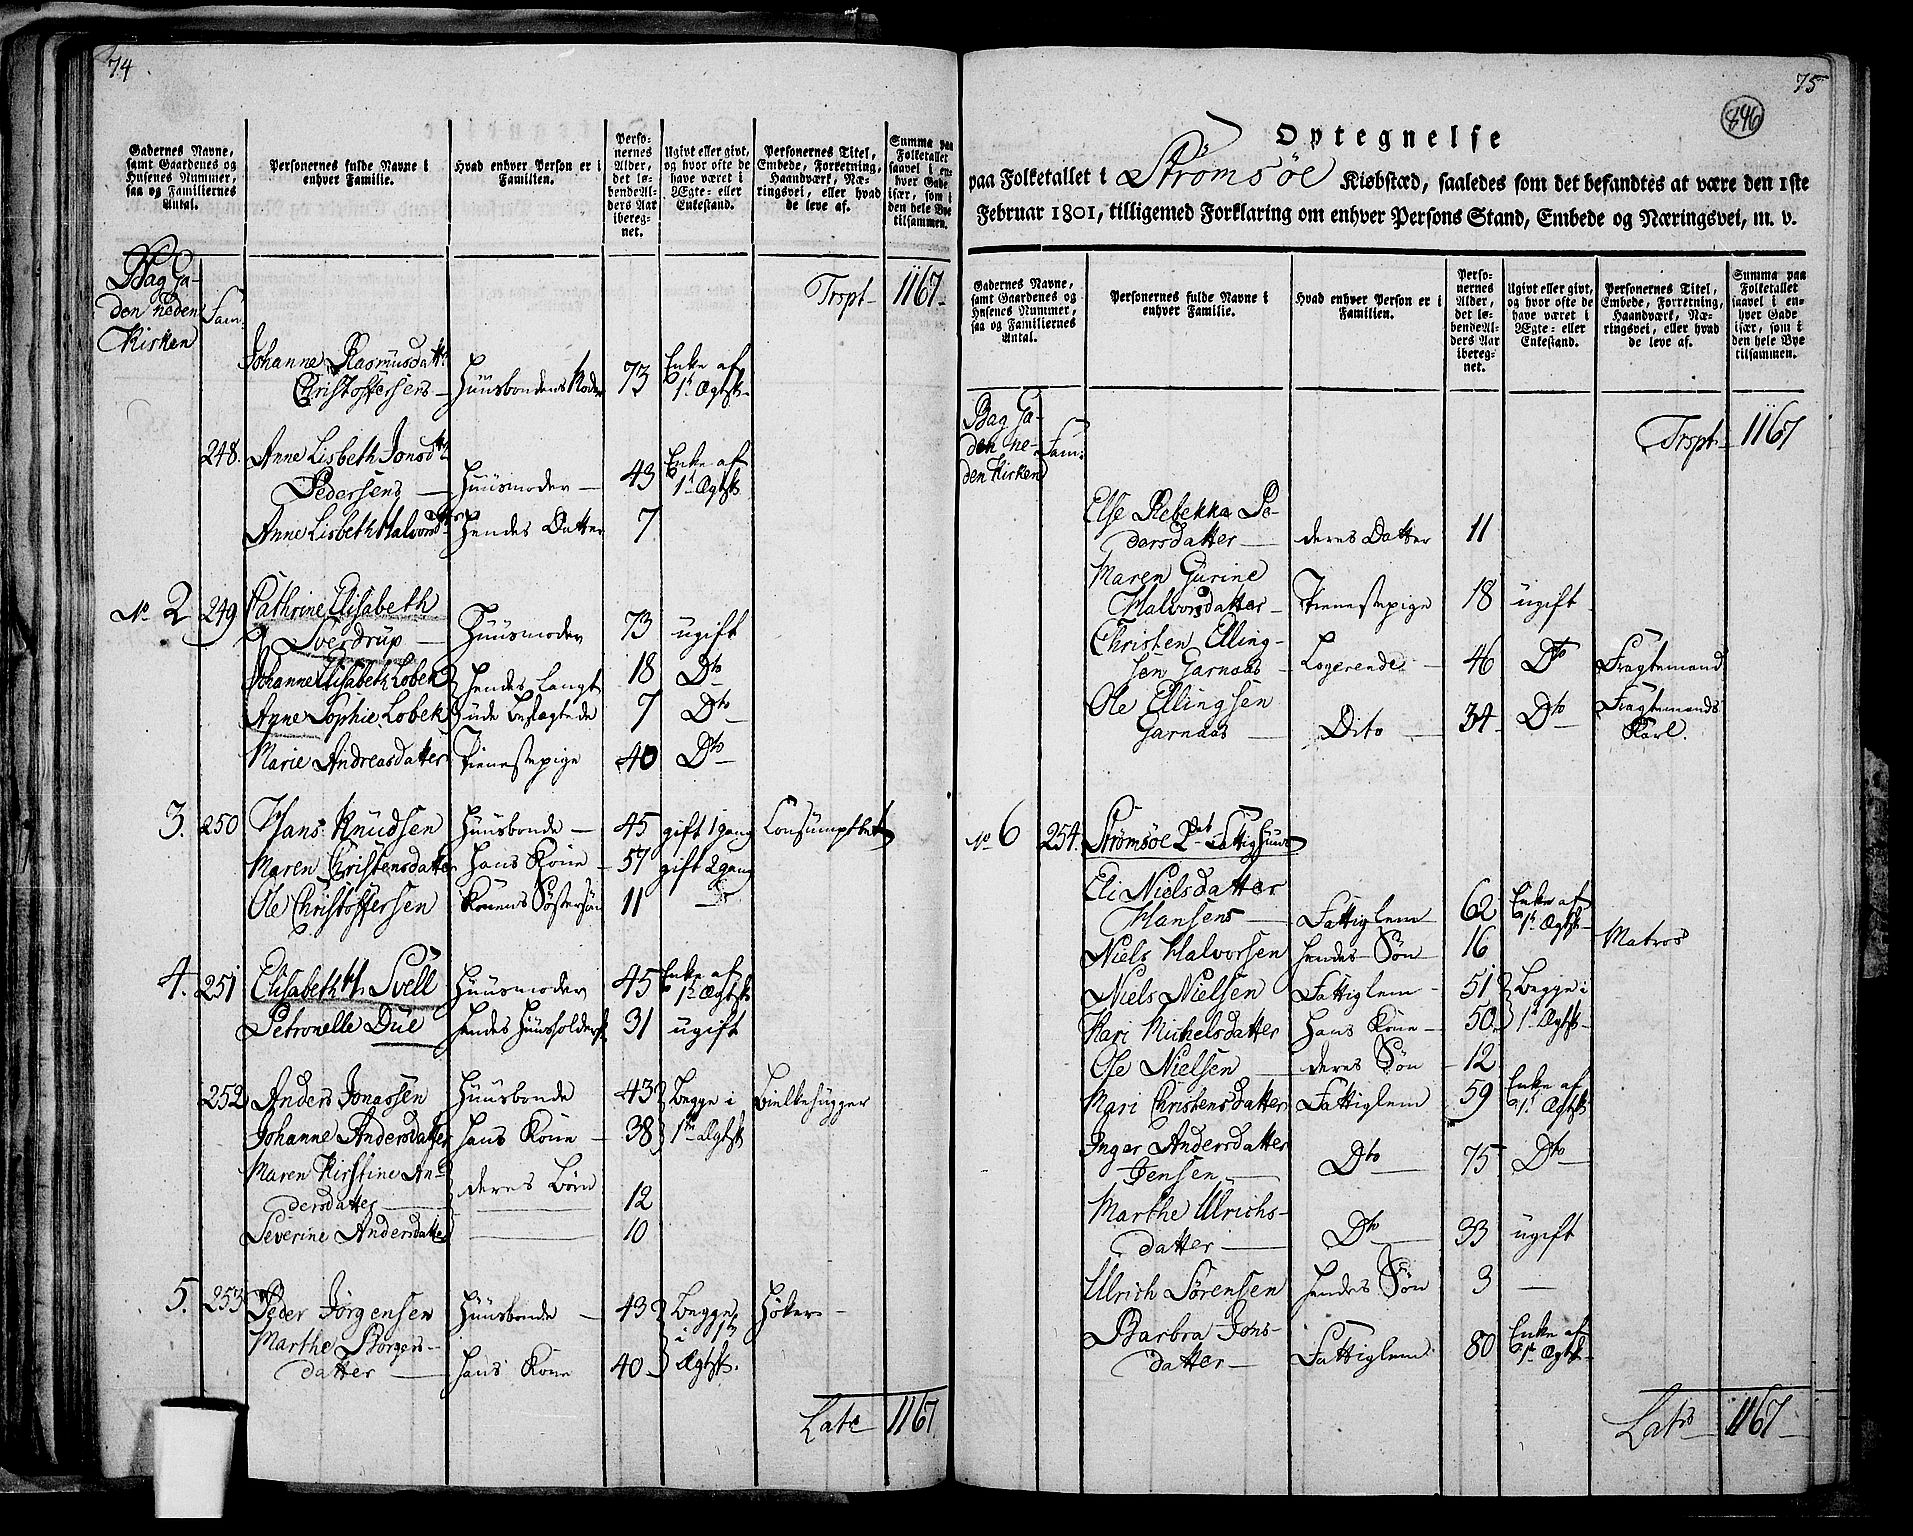 74
Gadernes Navne,
samt Gaardenes og
Husenes Nummer,
saa og Familiernes
Antal.
Personernes fulde Navne i
enhver Familie.
Hvad enhver Person er i
Familien.
Perso-
nernes
Alder,
det lø-
bendeAl-
ders Aar
ibereg-
net.
Ugivt eller givt,
og hvor ofte de
have været i
Ægte- eller
Enkestand.
Personernes Titel,
Embede, Forretning,
Haandværk, Næ-
ringsvei, eller hvad
de leve af.
Summa paa
Folketallet
saavel i en-
hver Gade
især, som i
den hele Bye
tilsammen.
Bag Ga-
den neden
Kirken
Fam:
Trpt- 1167-
Johanne Rasmusdatt:
Christoffersens - Huusbondens Moder 73 Enke af 1t Ægtsk-
248. Anne Lisbeth Jonsd:
Pedersens - Huusmoder - 43 Enke af 1t Ægtsk
Anne Lisbeth Halvorsd: Hendes Datter 7
No 2 249 Cathrine Elisabeth
Sverdrup - Huusmoder 73 ugift
Johanne Elisabeth Lobek } Hendes langt 18 Dto
Anne Sophie Lobek } ude beslægtede 7 Dto
Marie Andreasdatter Tienestepige 40 Dto
3. 250 Hans Knudsen Huusbonde - 45 gift 1 gang Consumptbet
Maren Christensdatter hans Kone - 57 gift 2 gang
Ole Christoffersen Konens Søstersøn 11 -
4. 251 Elisabeth H. Svell Huusmoder 45 Enke af 1t Ægtsk
Petronelle Due hendes Huusholdersk 31 ugift
252 Anders Jonassen Huusbonde 43 } Begge i Bielkehugger
Johanne Andersdatter hans Kone - 38 } 1te Ægtsk
Maren Kirstine An-
dersdatter } deres Børn 12
Severine Andersdatter 10
5. 253 Peder Jørgensen Huusbonde - 43 } Begge Høker -
Marthe Børges- } i 1te
datter - hans Kone 40 } Ægtsk.
Late 1167
75
896
Optegnelse
paa Folketallet i Strømsøe Kiøbstæd, saaledes som det befandtes at være den 1ste
Februar 1801, tilligemed Forklaring om enhver Persons Stand, Embede og Næringsvei, m. v.
Gadernes Navne,
samt Gaardenes og
Husenes Nummer,
saa og Familiernes
Antal.
Personernes fulde Navne i
enhver Familie.
Hvad enhver Person er i
Familien.
Perso-
nernes
Alder,
det lø-
bendeAl-
ders Aar
ibereg-
net.
Ugivt eller givt,
og hvor ofte de
have været i
Ægte- eller
Enkestand.
Personernes Titel,
Embede, Forretning,
Haandværk, Næ-
ringsvei, eller hvad
de leve af.
Summa paa
Folketallet
saavel i en-
hver Gade
især, som i
den hele Bye
tilsammen.
Bag Ga-
den ne-
den Kirken
Fam:
Trpt- 1167
Else Rebekka Pe-
dersdatter - deres Datter 11
Maren Gurine
Halvorsdatter - Tienestepige 18 ugift
Christen Elling-
sen Garnaas - Logerende - 46 Dto Fragtemand
Ole Ellingsen
Garnaas - Dito - 34 Dto - Fragtemands Karl.
No 6 254. Strømsøe 2det Fattighuus
Eli Nielsdatter
Hansens - Fattiglem - 62 Enke af 1t Ægtsk-
Niels Halvorsen hendes Søn 16 Matros
Niels Nielsen Fattiglem - 51 } Begge i
Kari Michelsdatter hans Kone - 50 } 1t Ægtsk-
Ole Nielsen - deres Søn - 12
Mari Christensdatter Fattiglem - 59 Enke af 1t Ægtsk
Inger Andersdatter
Jensen - Dto - 75 Dto -
Marthe Ulrichs-
datter - Dto - 33 ugift
Ulrich Sørensen hendes Søn 3 -
Barbra Jons-
datter - Fattiglem 80 Enke af 1t Ægtsk-
Lats 1167-